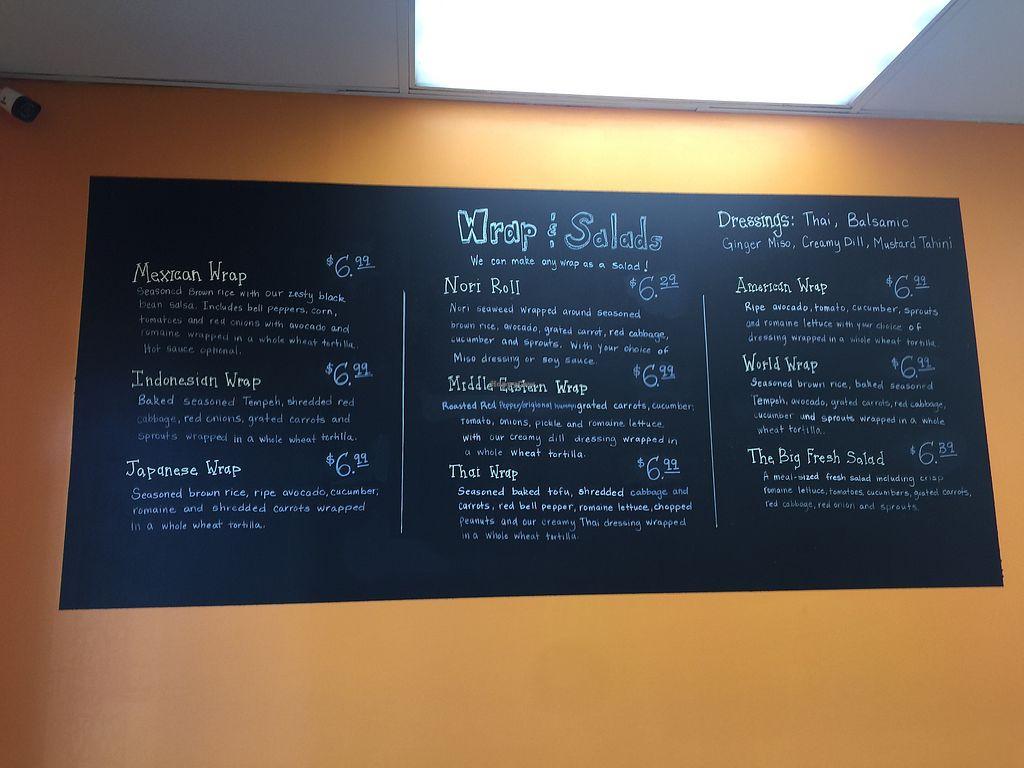 Wrap & Salads
We can make any wrap as a salad!
Dressings: Thai, Balsamic
Ginger Miso, Creamy Dill, Mustard Tahini
Mexican Wrap $6.99
Seasoned Brown rice with our zesty black
bean salsa. Includes bell peppers, corn,
tomatoes and red onions with avocado and
romaine wrapped in a whole wheat tortilla.
Hot sauce optional.
Indonesian Wrap $6.99
Baked seasoned Tempeh, shredded red
cabbage, red onions, grated carrots and
sprouts wrapped in a whole wheat tortilla.
Japanese Wrap $6.99
Seasoned brown rice, ripe avocado, cucumber,
romaine and shredded carrots wrapped
in a whole wheat tortilla.
Nori Roll $6.39
Nori seaweed wrapped around seasoned
brown rice, avocado, grated carrot, red cabbage,
cucumber and sprouts. With your choice of
Miso dressing or soy sauce.
Middle Eastern Wrap $6.99
Roasted Red Pepper/origional hummus grated carrots, cucumber,
tomato, onions, pickle and romaine lettuce
with our creamy dill dressing wrapped in
a whole wheat tortilla.
Thai Wrap $6.99
Seasoned baked tofu, shredded cabbage and
carrots, red bell pepper, romaine lettuce, chopped
peanuts and our creamy Thai dressing wrapped
in a whole wheat tortilla.
American Wrap $6.99
Ripe avocado, tomato, cucumber, sprouts
and romaine lettuce with your choice of
dressing wrapped in a whole wheat tortilla.
World Wrap $6.99
Seasoned brown rice, baked seasoned
Tempeh, avocado, grated carrots, red cabbage,
cucumber and sprouts wrapped in a whole
wheat tortilla.
The Big Fresh Salad $6.39
A meal-sized fresh salad including crisp
romaine lettuce, tomatoes, cucumbers, grated carrots,
red cabbage, red onion and sprouts.